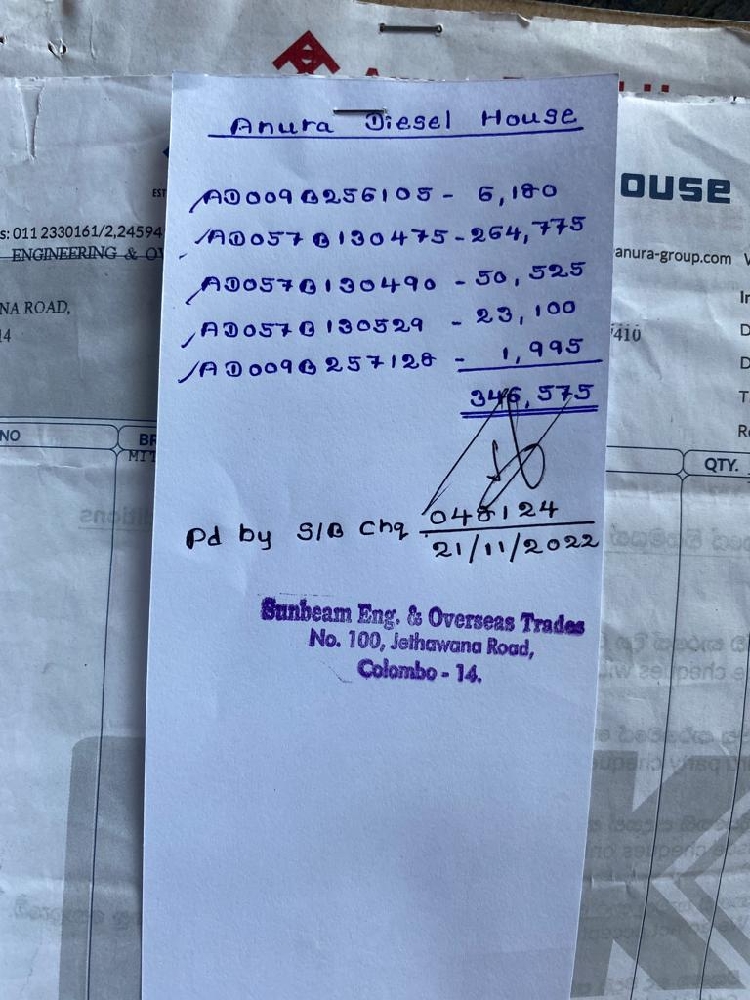 Anura Diesel House
AD009B256105 - 6,180
OUSE
AD057B130475 - 264,775
s: 011 2330161/2,24594
ENGINEERING & OV
anura-group.com
AD057B130490 - 50,525
NA ROAD,
AD057B130529 - 23,100
14
410
AD009B257128 - 1,995
346,575
NO
BR
QTY.
MIT
Pd by S/B Chq 048124
21/11/2022
Sunbeam Eng. & Overseas Trades
No. 100, Jethawana Road,
Colombo - 14.